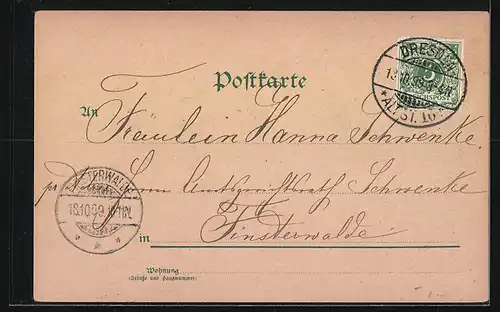 DRESDEN
ALTST. 16
REICHSPOST
Postkarte
An
Fräulein Hanna Schwenke
Herrn Amtsgerichtsrath Schwenke
FINSTERWALDE
18 10 99
in Finsterwalde
Wohnung
(Straße und Hausnummer)